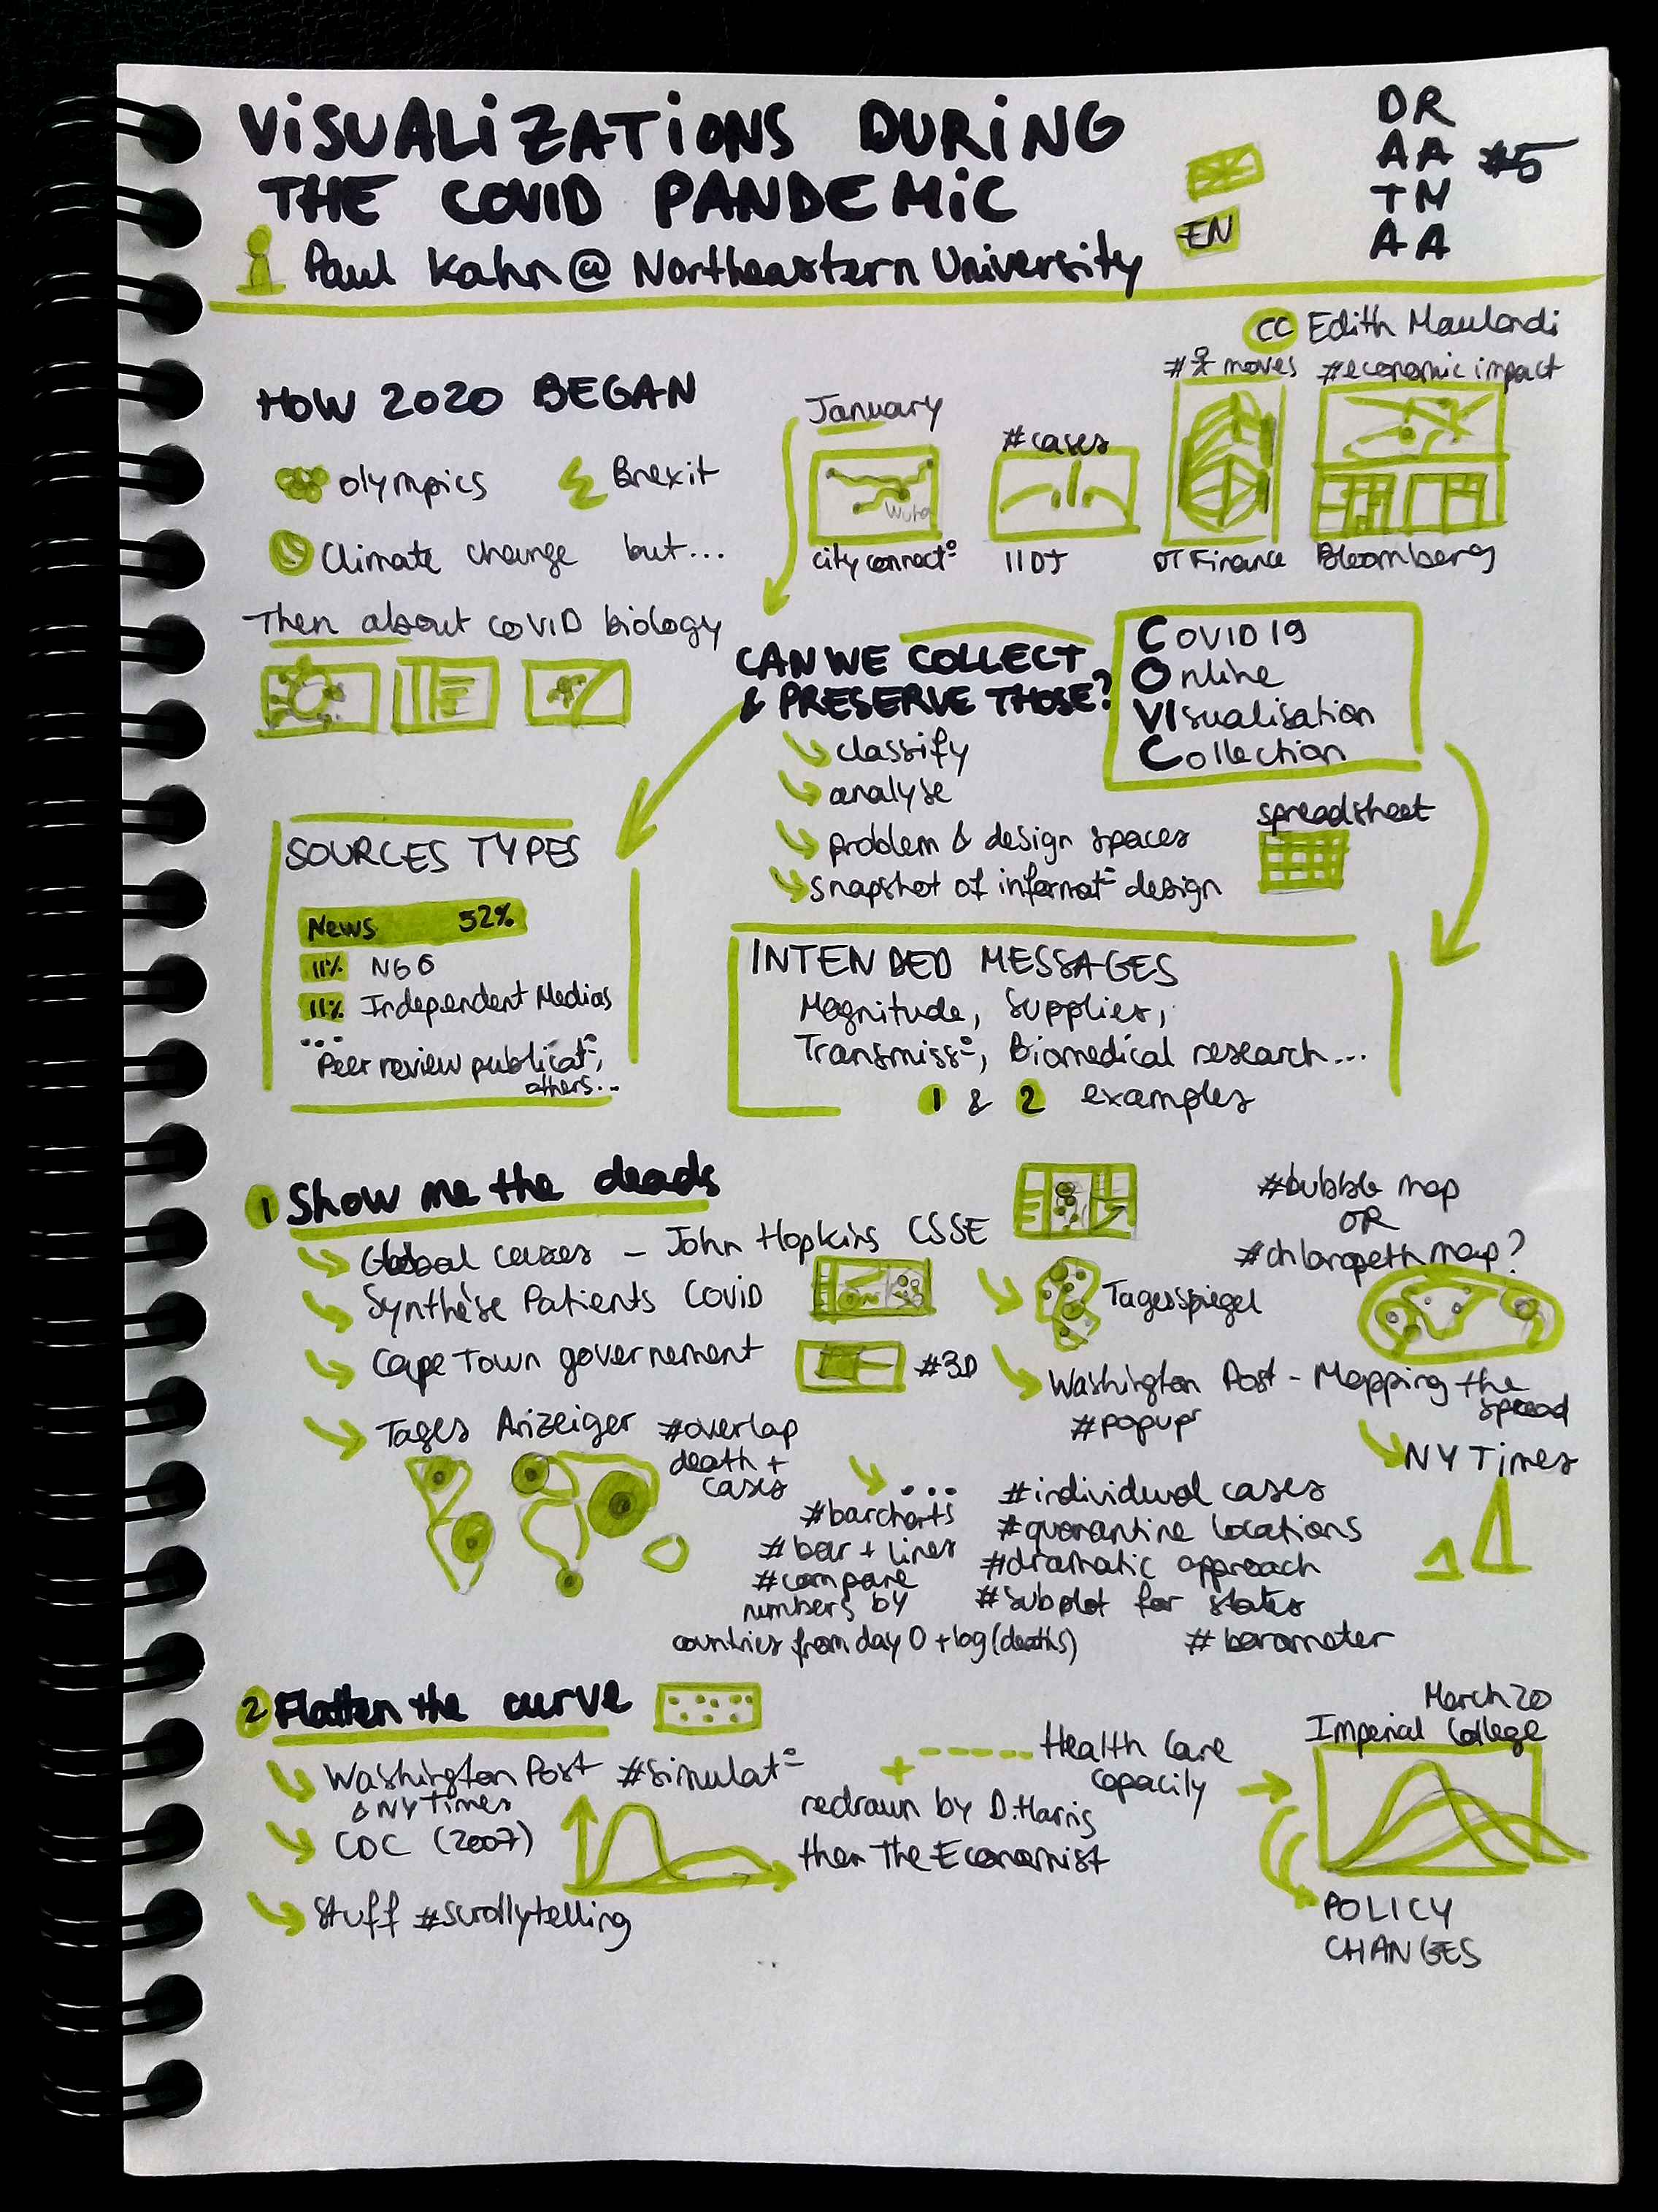 VISUALIZATIONS DURING
THE COVID PANDEMIC
Paul Kahn @ Northeastern University
EN
DR
AA #5
TM
AA
CC Edith Maulandi
HOW 2020 BEGAN
olympics
Brexit
Climate change but...
Then about COVID biology
January
Wuha
city connect°
#cases
IIDJ
# moves
DT Finance
#economic impact
Bloomberg
CAN WE COLLECT
& PRESERVE THOSE?
classify
analyse
problem & design spaces
snapshot of informat° design
COVID19
Online
VIsualisation
Collection
spreadsheet
SOURCES TYPES
News 52%
11% NGO
11% Independent Medias
...
Peer review publicat°,
others...
INTENDED MESSAGES
Magnitude, Supplies,
Transmiss°, Biomedical research...
1 & 2 examples
1 Show me the deads
Global cases - John Hopkins CSSE
Synthèse Patients Covid
Cape Town governement #3D
Tages Anzeiger #overlap
death +
cases
#bubble map
OR
#chloropeth map?
Tagesspiegel
Washington Post - Mapping the
spread
#popup
NY Times
...
#barcharts
#bar + lines
#compare
numbers by
countries from day 0 + log(deaths)
#individual cases
#quarantine locations
#dramatic approach
#subplot for states
#barometer
2 Flatten the curve
Washington Post #simulat°
& NY Times
CDC (2007)
Stuff #scrollytelling
+ ----- Health Care
Capacity
redrawn by D.Harris
then The Economist
March 20
Imperial College
POLICY
CHANGES